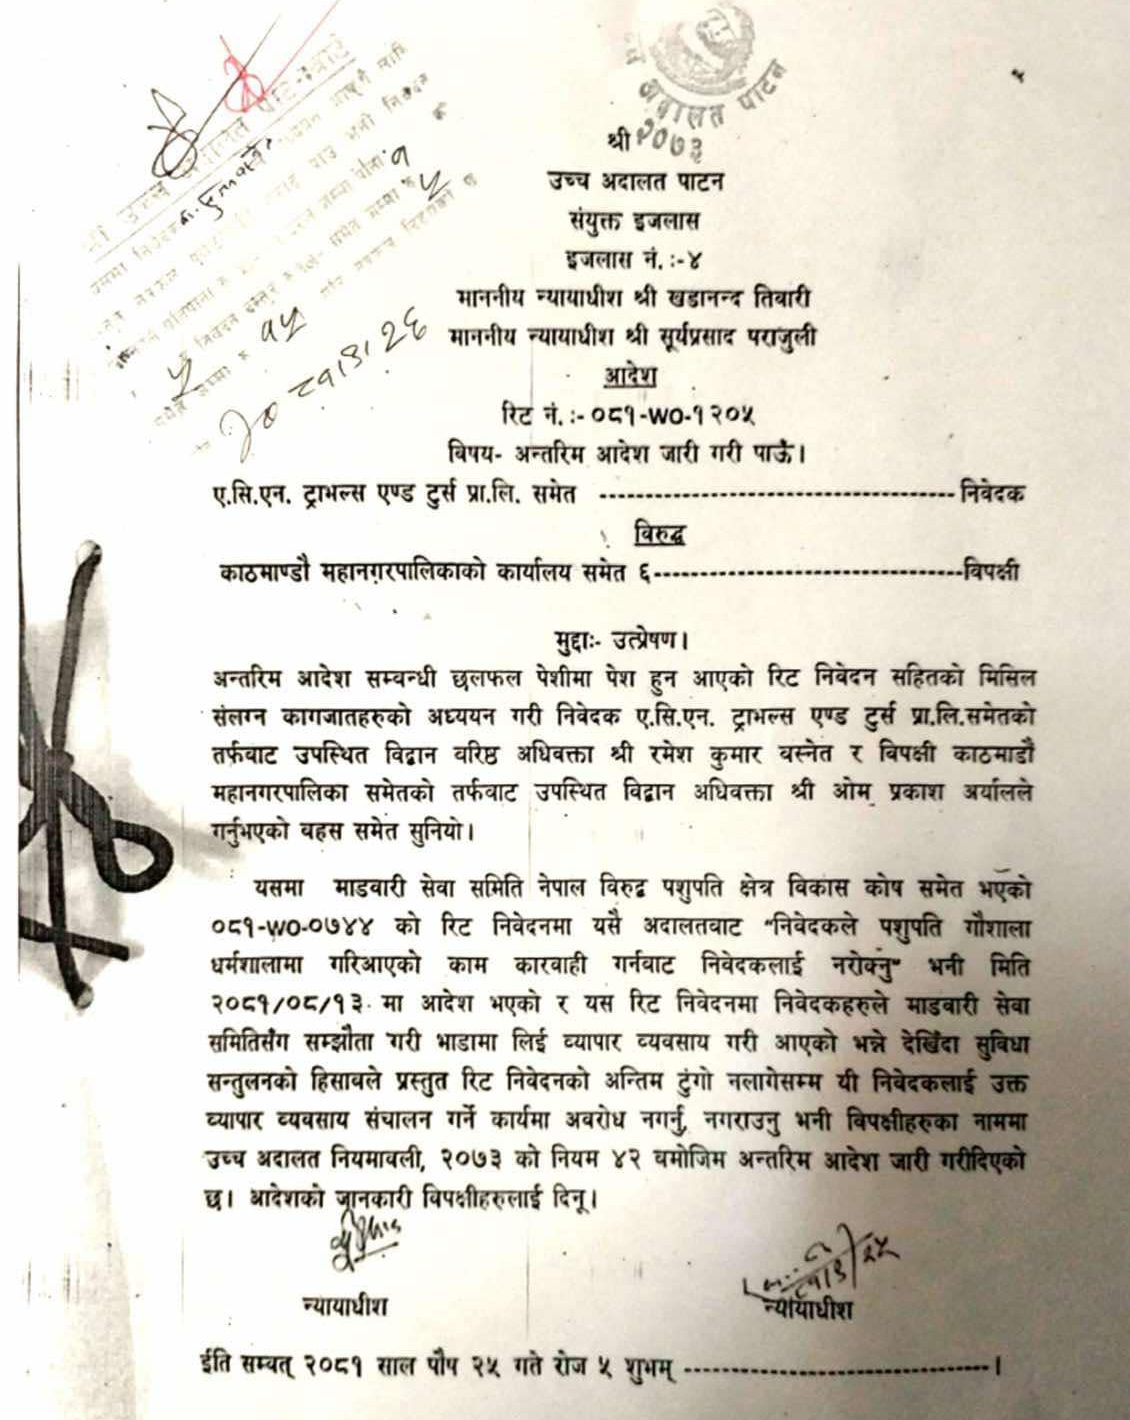 उच्च अदालत पाटन
२०७३
श्री
उच्च अदालत पाटन
संयुक्त इजलास
इजलास नं. :-४
माननीय न्यायाधीश श्री खडानन्द तिवारी
माननीय न्यायाधीश श्री सूर्यप्रसाद पराजुली
आदेश
रिट नं. :- ०८१-WO-१२०५
विषय- अन्तरिम आदेश जारी गरी पाऊँ।
ए.सि.एन. ट्राभल्स एण्ड टुर्स प्रा.लि. समेत --------------------------------------- निवेदक
विरुद्ध
काठमाण्डौ महानगरपालिकाको कार्यालय समेत ६----------------------------------विपक्षी
मुद्दाः- उत्प्रेषण।
अन्तरिम आदेश सम्बन्धी छलफल पेशीमा पेश हुन आएको रिट निवेदन सहितको मिसिल
संलग्न कागजातहरुको अध्ययन गरी निवेदक ए.सि.एन. ट्राभल्स एण्ड टुर्स प्रा.लि.समेतको
तर्फबाट उपस्थित विद्वान वरिष्ठ अधिवक्ता श्री रमेश कुमार बस्नेत र विपक्षी काठमाडौं
महानगरपालिका समेतको तर्फबाट उपस्थित विद्वान अधिवक्ता श्री ओम प्रकाश अर्यालले
गर्नुभएको बहस समेत सुनियो।
यसमा माडवारी सेवा समिति नेपाल विरुद्ध पशुपति क्षेत्र विकास कोष समेत भएको
०८१-WO-०७४४ को रिट निवेदनमा यसै अदालतबाट "निवेदकले पशुपति गौशाला
धर्मशालामा गरिआएको काम कारवाही गर्नबाट निवेदकलाई नरोक्नु" भनी मिति
२०८१/०८/१३ मा आदेश भएको र यस रिट निवेदनमा निवेदकहरुले माडवारी सेवा
समितिसँग सम्झौता गरी भाडामा लिई व्यापार व्यवसाय गरी आएको भन्ने देखिँदा सुविधा
सन्तुलनको हिसाबले प्रस्तुत रिट निवेदनको अन्तिम टुंगो नलागेसम्म यी निवेदकलाई उक्त
व्यापार व्यवसाय संचालन गर्ने कार्यमा अवरोध नगर्नु, नगराउनु भनी विपक्षीहरुका नाममा
उच्च अदालत नियमावली, २०७३ को नियम ४२ बमोजिम अन्तरिम आदेश जारी गरीदिएको
छ। आदेशको जानकारी विपक्षीहरुलाई दिनू।
न्यायाधीश
न्यायाधीश
ईति सम्वत् २०८१ साल पौष २५ गते रोज ५ शुभम् ---------------------------------।